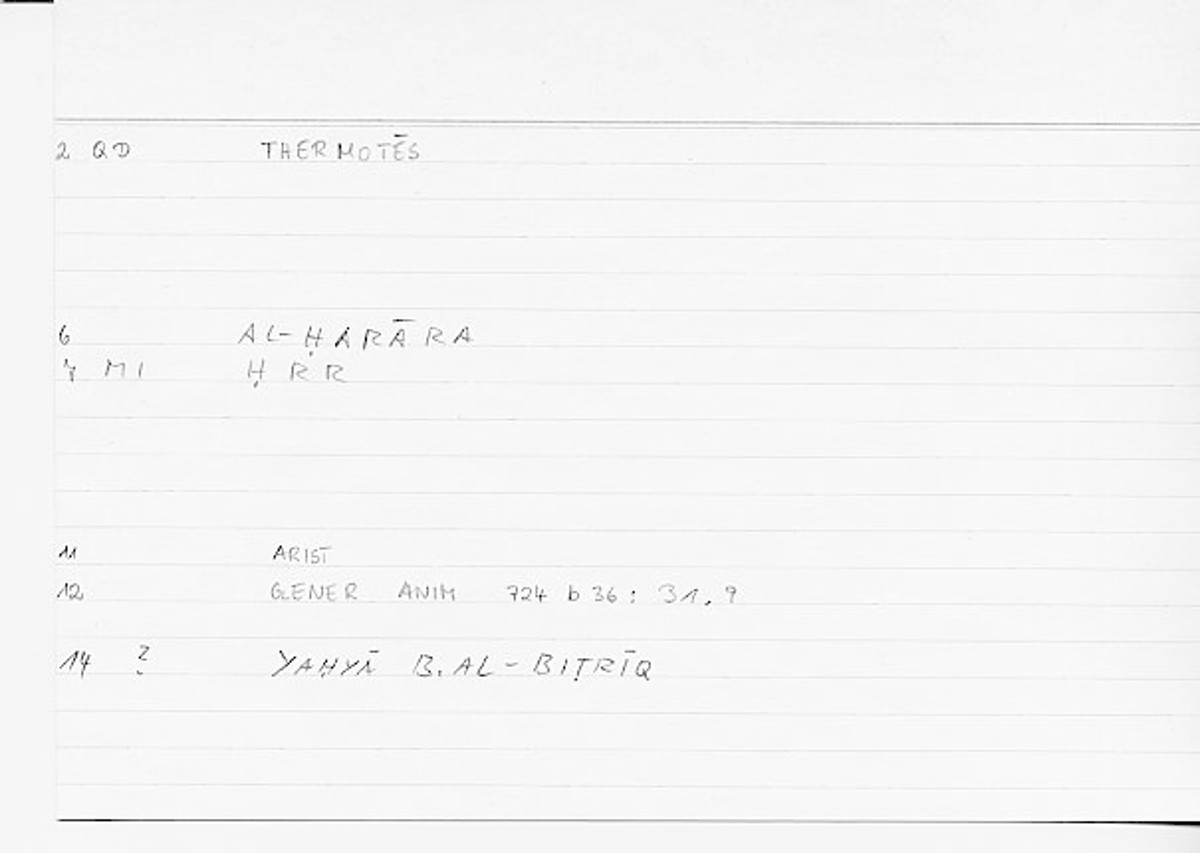 2 QD THERMOTĒS
6 AL-ḤARĀRA
7 MI ḤRR
11 ARIST
12 GENER ANIM 724 b 36 : 31, 9
14 ? YAḤYĀ B. AL-BIṬRĪQ